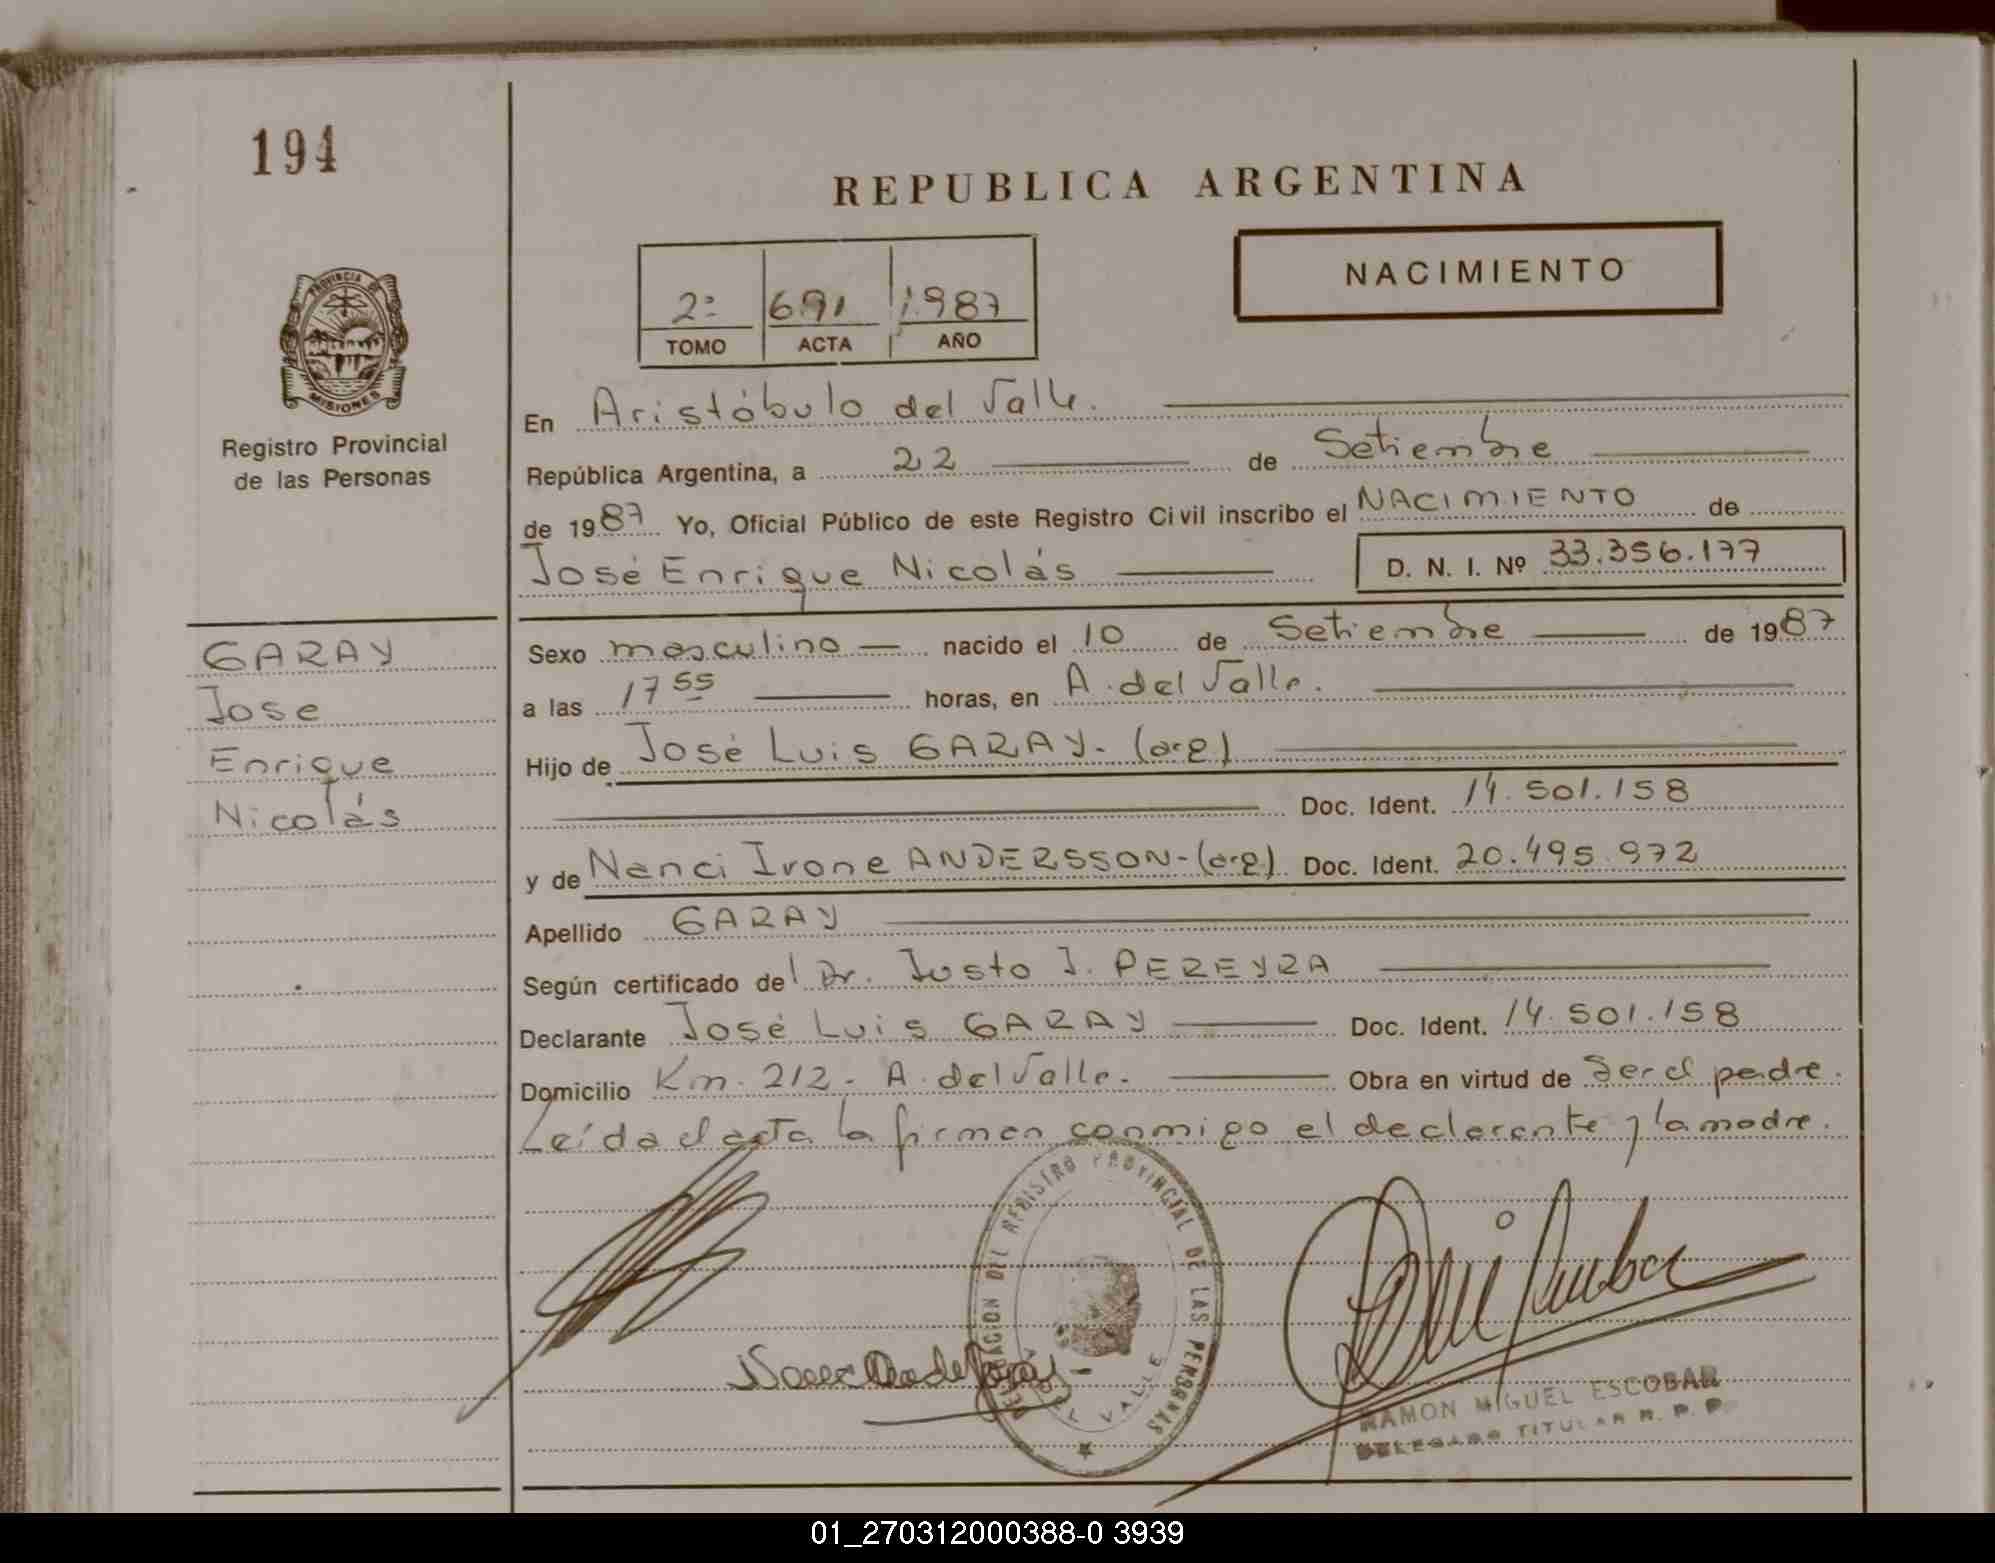 194
REPUBLICA ARGENTINA
NACIMIENTO
2º 691 1.987
TOMO ACTA AÑO
PROVINCIA DE
MISIONES
Registro Provincial
de las Personas
En Aristóbulo del Valle.
República Argentina, a 22 de Setiembre
de 1987 Yo, Oficial Público de este Registro Civil inscribo el NACIMIENTO de
José Enrique Nicolás D. N. I. Nº 33.356.177
GARAY
Jose
Enrique
Nicolás
Sexo masculino nacido el 10 de Setiembre de 1987
a las 17 55 horas, en A. del Valle.
Hijo de José Luis GARAY. (arg)
Doc. Ident. 14.501.158
y de Nanci Ivone ANDERSSON-(arg) Doc. Ident. 20.495.972
Apellido GARAY
Según certificado del Dr. Justo J. PEREYRA
Declarante José Luis GARAY Doc. Ident. 14.501.158
Domicilio Km. 212- A. del Valle. Obra en virtud de Ser el padre.
Leída el acta la firman conmigo el declarante y la madre.
DELEGACION DEL REGISTRO PROVINCIAL DE LAS PERSONAS
DEL VALLE
RAMON MIGUEL ESCOBAR
DELEGADO TITULAR R. P. P.
01_270312000388-0 3939